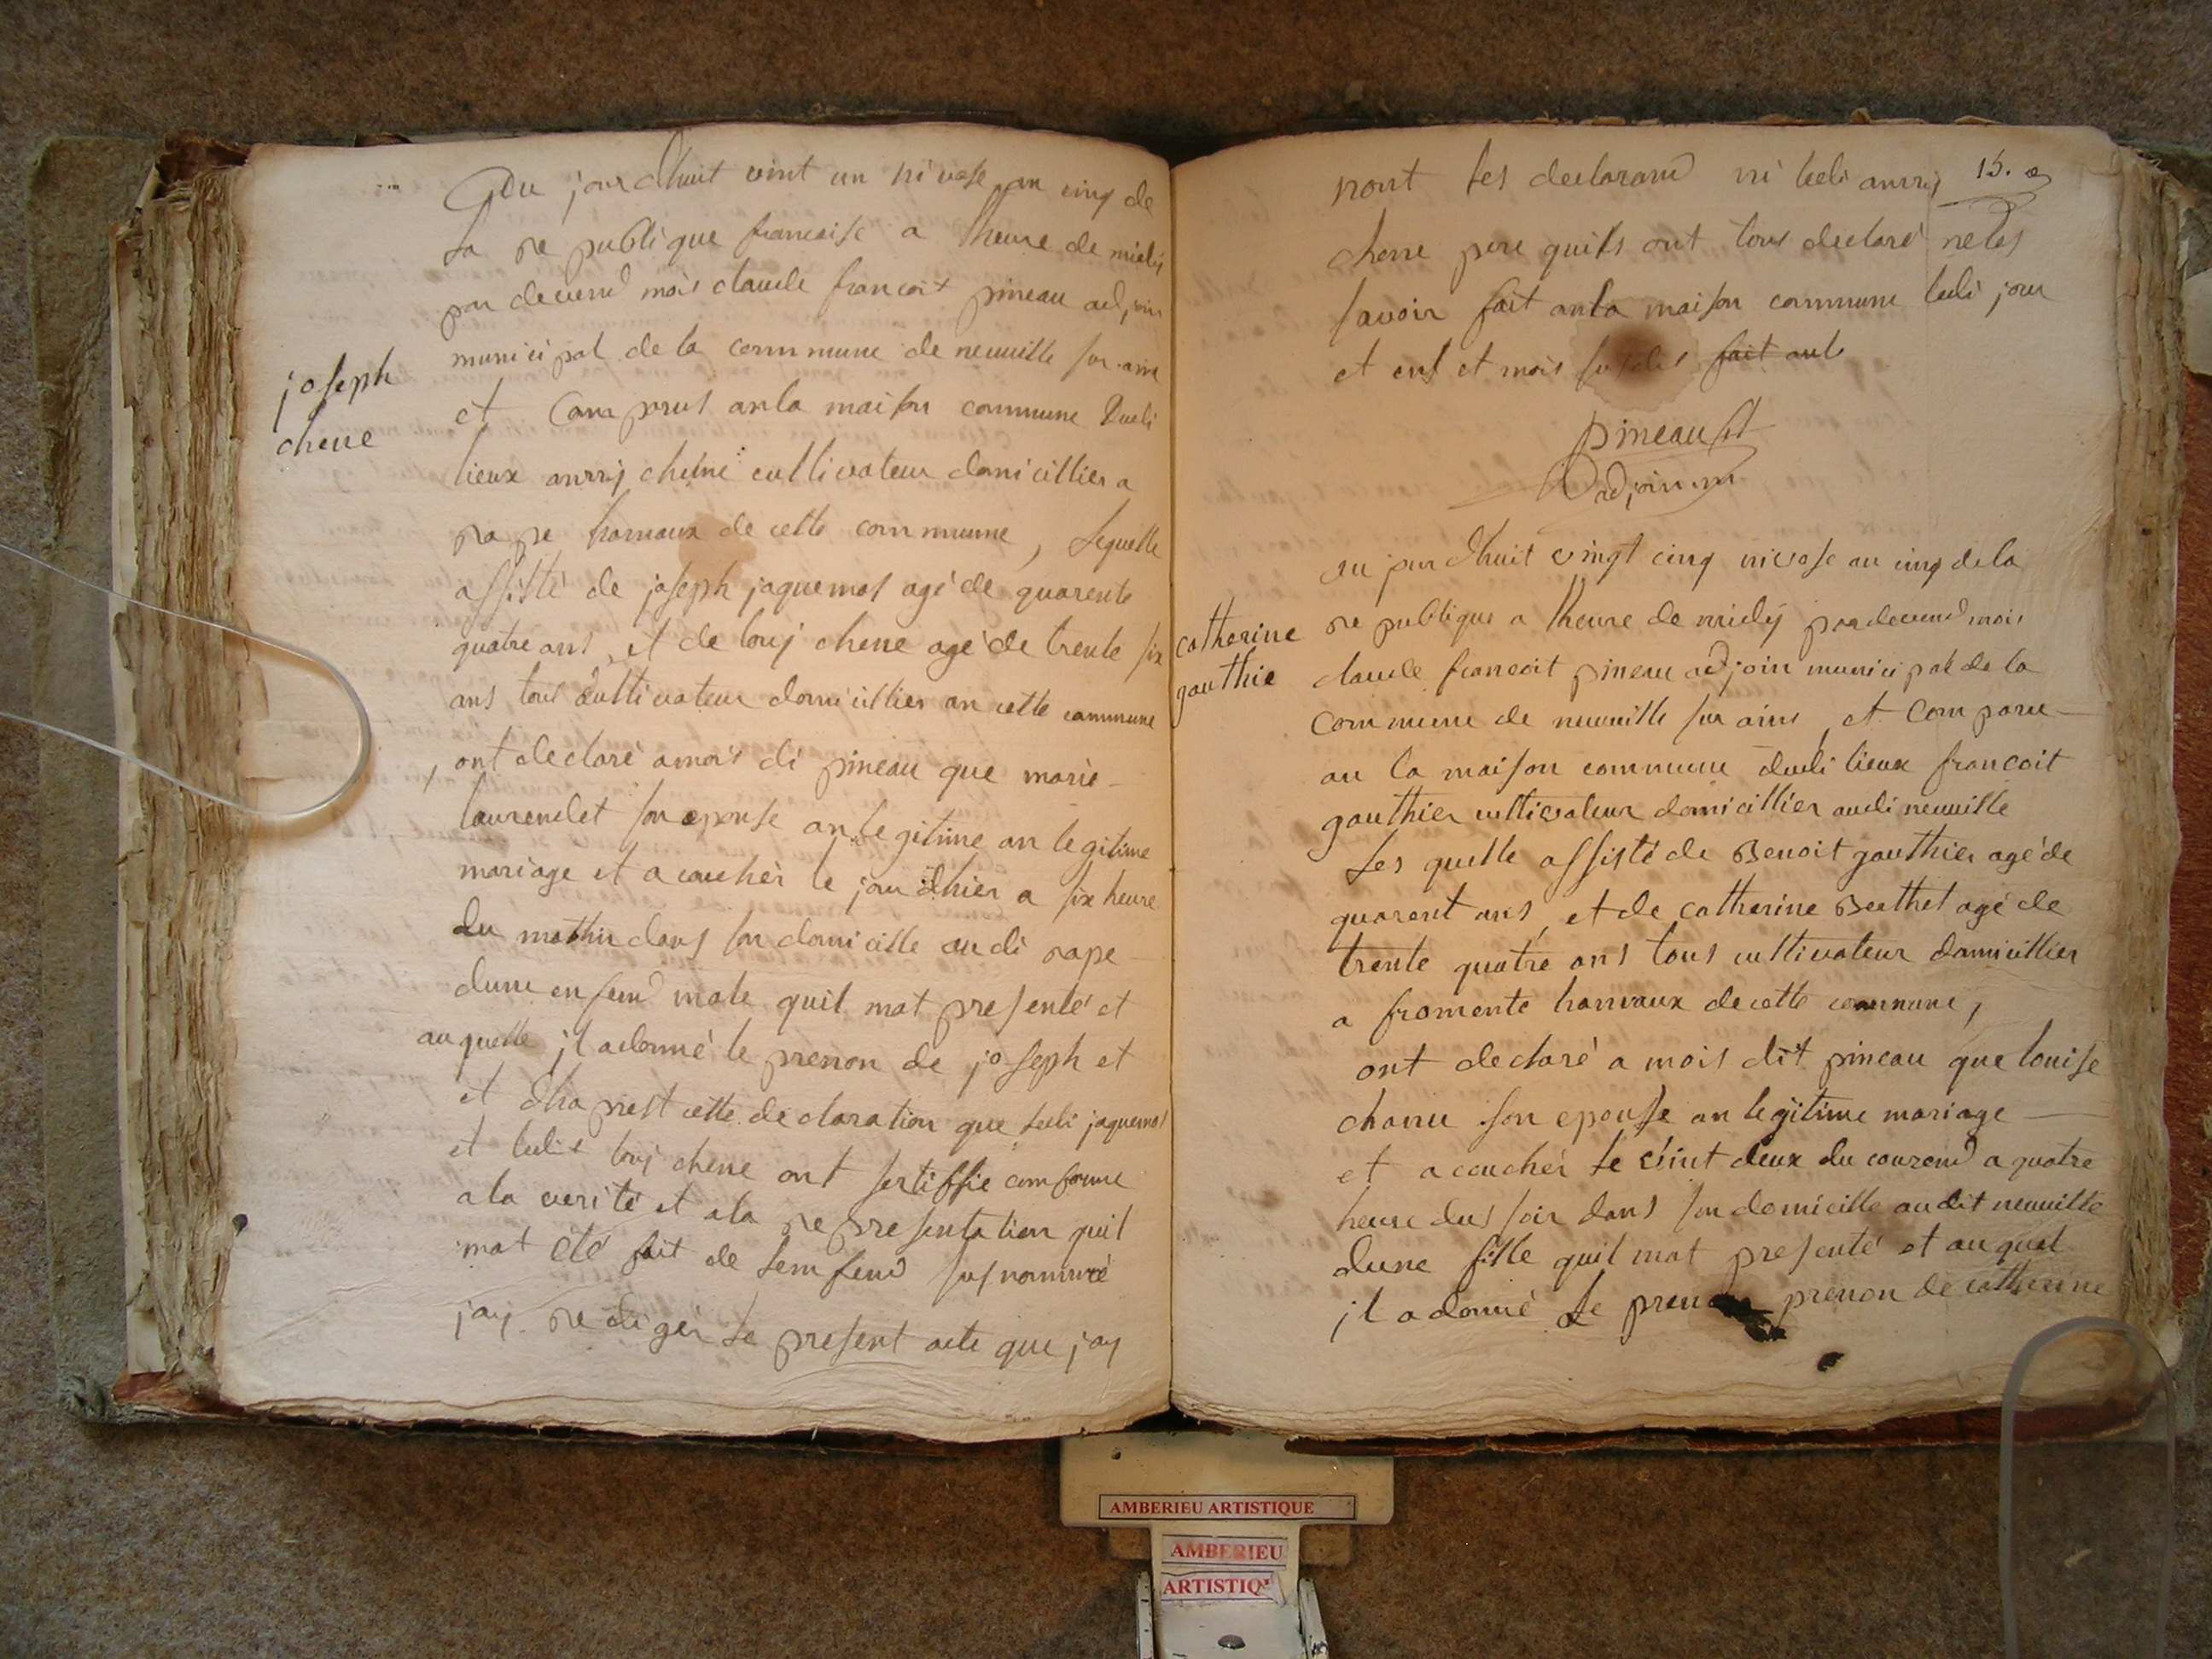 joseph
chene
Du jourdhuit vint un nivose an cinq de
La re publique francoise a lheure de midij
par devend mois claude francoit pineau adjoin
municipal de la commune de neuville sur ain
et Comparus anla maison commune dudi
lieux anrij chene cultivateur domicillier a
rape hamaux de cette commune, Lequelle
assisté de joseph jaquemos agé de quarente
quatre ans, et de louj chene agé de trente six
ans tous cultivateur domicillier an cette commune
, ont declaré a mois di pineau que marie
laurendet son eponse an legitime an legitime
mariage et a couchér le jour dhier a six heure
du mathin dans son domicille audi rape
dune enfend male quil mat presenté et
au quelle jl a donné le prenon de joseph et
et dha prest cette declaration que ledi jaquemos
et ledit louj chene ont sertiffie comforme
a la verité et a la representation quil
mat été fait de lemfend susnommé
jaij redigér le present acte que jaij
15.
nont les declarand ni ledi anrij
chene pere quils ont tous declaré neles
savoir fait anla maison commune ledi jour
et ent et mois susdis fait anla
pineau
adjoin m
au jourdhuit vingt cinq nivose an cinq de la
republique a lheure de midij pardevend mois
claude francoit pineau adjoin municipal de la
commune de neuville sur ains, et Comparu
catherine
gauthie
an la maison commune dudi lieux francoit
gauthier cultivateur domicillier audi neuville
Les quelle assisté de Benoit gauthier agé de
quarent ans, et de catherine Berthet agé de
trente quatre ans tous cultivateur domicillier
a fromente hamaux de cette commune,
ont declaré a mois dit pineau que louise
chanu son epouse an legitime mariage
et a couchér le vint deux du courend a quatre
heure dus soir dans son domicille audit neuville
dune fille quil mat presenté et au quel
jl a donné Le prenon prenon de catherine
AMBERIEU ARTISTIQUE
AMBERIEU
ARTISTIQ